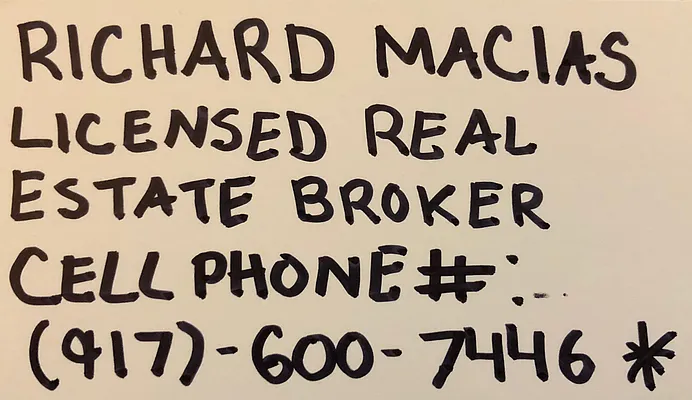 RICHARD MACIAS
LICENSED REAL
ESTATE BROKER
CELL PHONE #:
(917)-600-7446 *